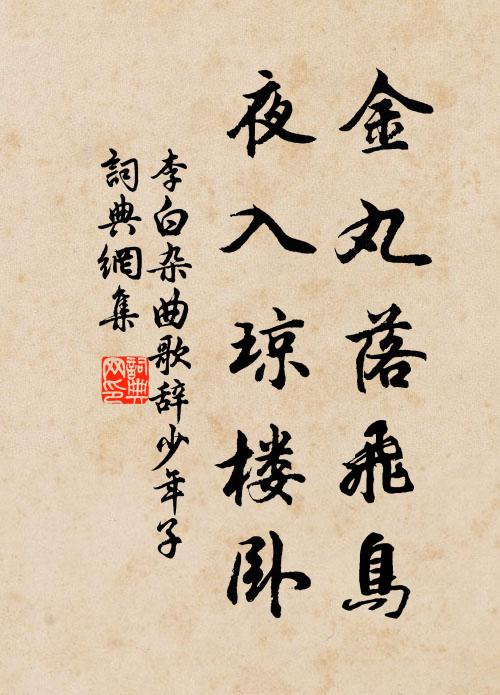 金丸落飛鳥
夜入琼楼卧
李白杂曲歌辞少年子
詞典網集
詞典网印